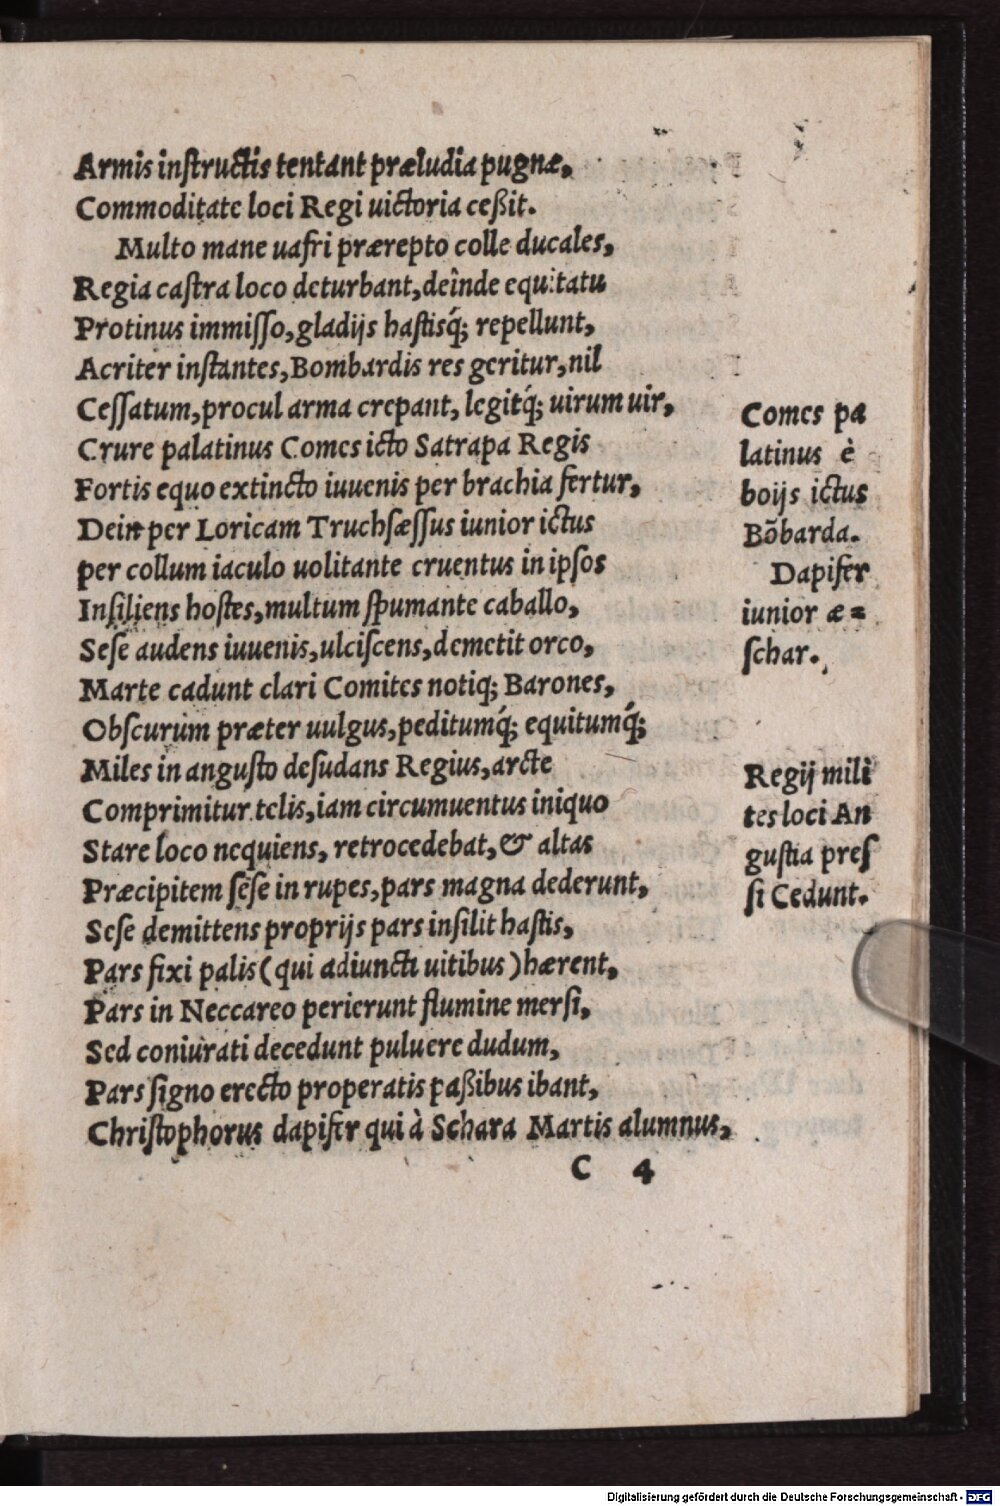 Armis inſtructis tentant præludia pugnæ,
Commoditate loci Regi uictoria ceßit.
Multo mane uafri prærepto colle ducales,
Regia caſtra loco deturbant, deînde equitatu
Protinus immiſſo, gladijs haſtisq́; repellunt,
Acriter inſtantes, Bombardis res geritur, nil
Ceſſatum, procul arma crepant, legitq́; uirum uir,
Crure palatinus Comes icto Satrapa Regis
Fortis equo extincto iuuenis per brachia fertur,
Dein per Loricam Truchſæſſus iunior ictus
per collum iaculo uolitante cruentus in ipſos
Inſiliens hoſtes, multum ſpumante caballo,
Seſe audens iuuenis, ulciſcens, demetit orco,
Marte cadunt clari Comites notiq; Barones,
Obſcurum præter uulgus, peditumq́; equitumq́;
Miles in anguſto deſudans Regius, arcte
Comprimitur telis, iam circumuentus iniquo
Stare loco nequiens, retrocedebat, & altas
Præcipitem ſeſe in rupes, pars magna dederunt,
Seſe demittens proprijs pars inſilit haſtis,
Pars fixi palis (qui adiuncti uitibus) hærent,
Pars in Neccareo perierunt flumine merſi,
Sed coniurati decedunt puluere dudum,
Pars ſigno erecto properatis paßibus ibant,
Chriſtophorus dapifer qui à Schara Martis alumnus,
C 4
Comes pa
latinus è
boijs ictus
Bõbarda.
Dapifer
iunior æ=
ſchar.
Regij mili
tes loci An
guſtia preſ
ſi Cedunt.
Digitalisierung gefördert durch die Deutsche Forschungsgemeinschaft - DFG